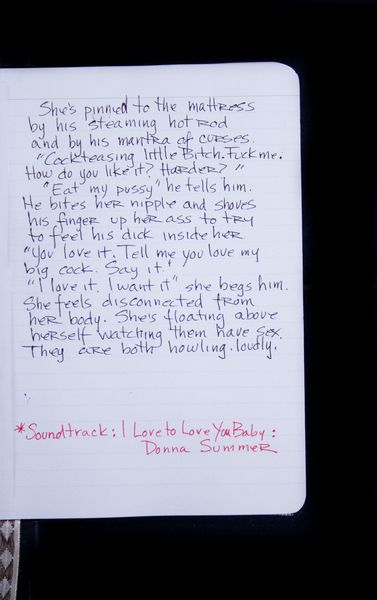 She's pinned to the mattress
by his steaming hot rod
and by his mantra of curses.
"Cockteasing little Bitch. Fuck me.
How do you like it? Harder?"
"Eat my pussy" he tells him.
He bites her nipple and shoves
his finger up her ass to try
to feel his dick inside her
"You love it. Tell me you love my
big cock. Say it!"
"I love it. I want it" she begs him.
She feels disconnected from
her body. She's floating above
herself watching them have sex.
They are both howling. loudly.
*Soundtrack: I Love to Love You Baby:
Donna Summer